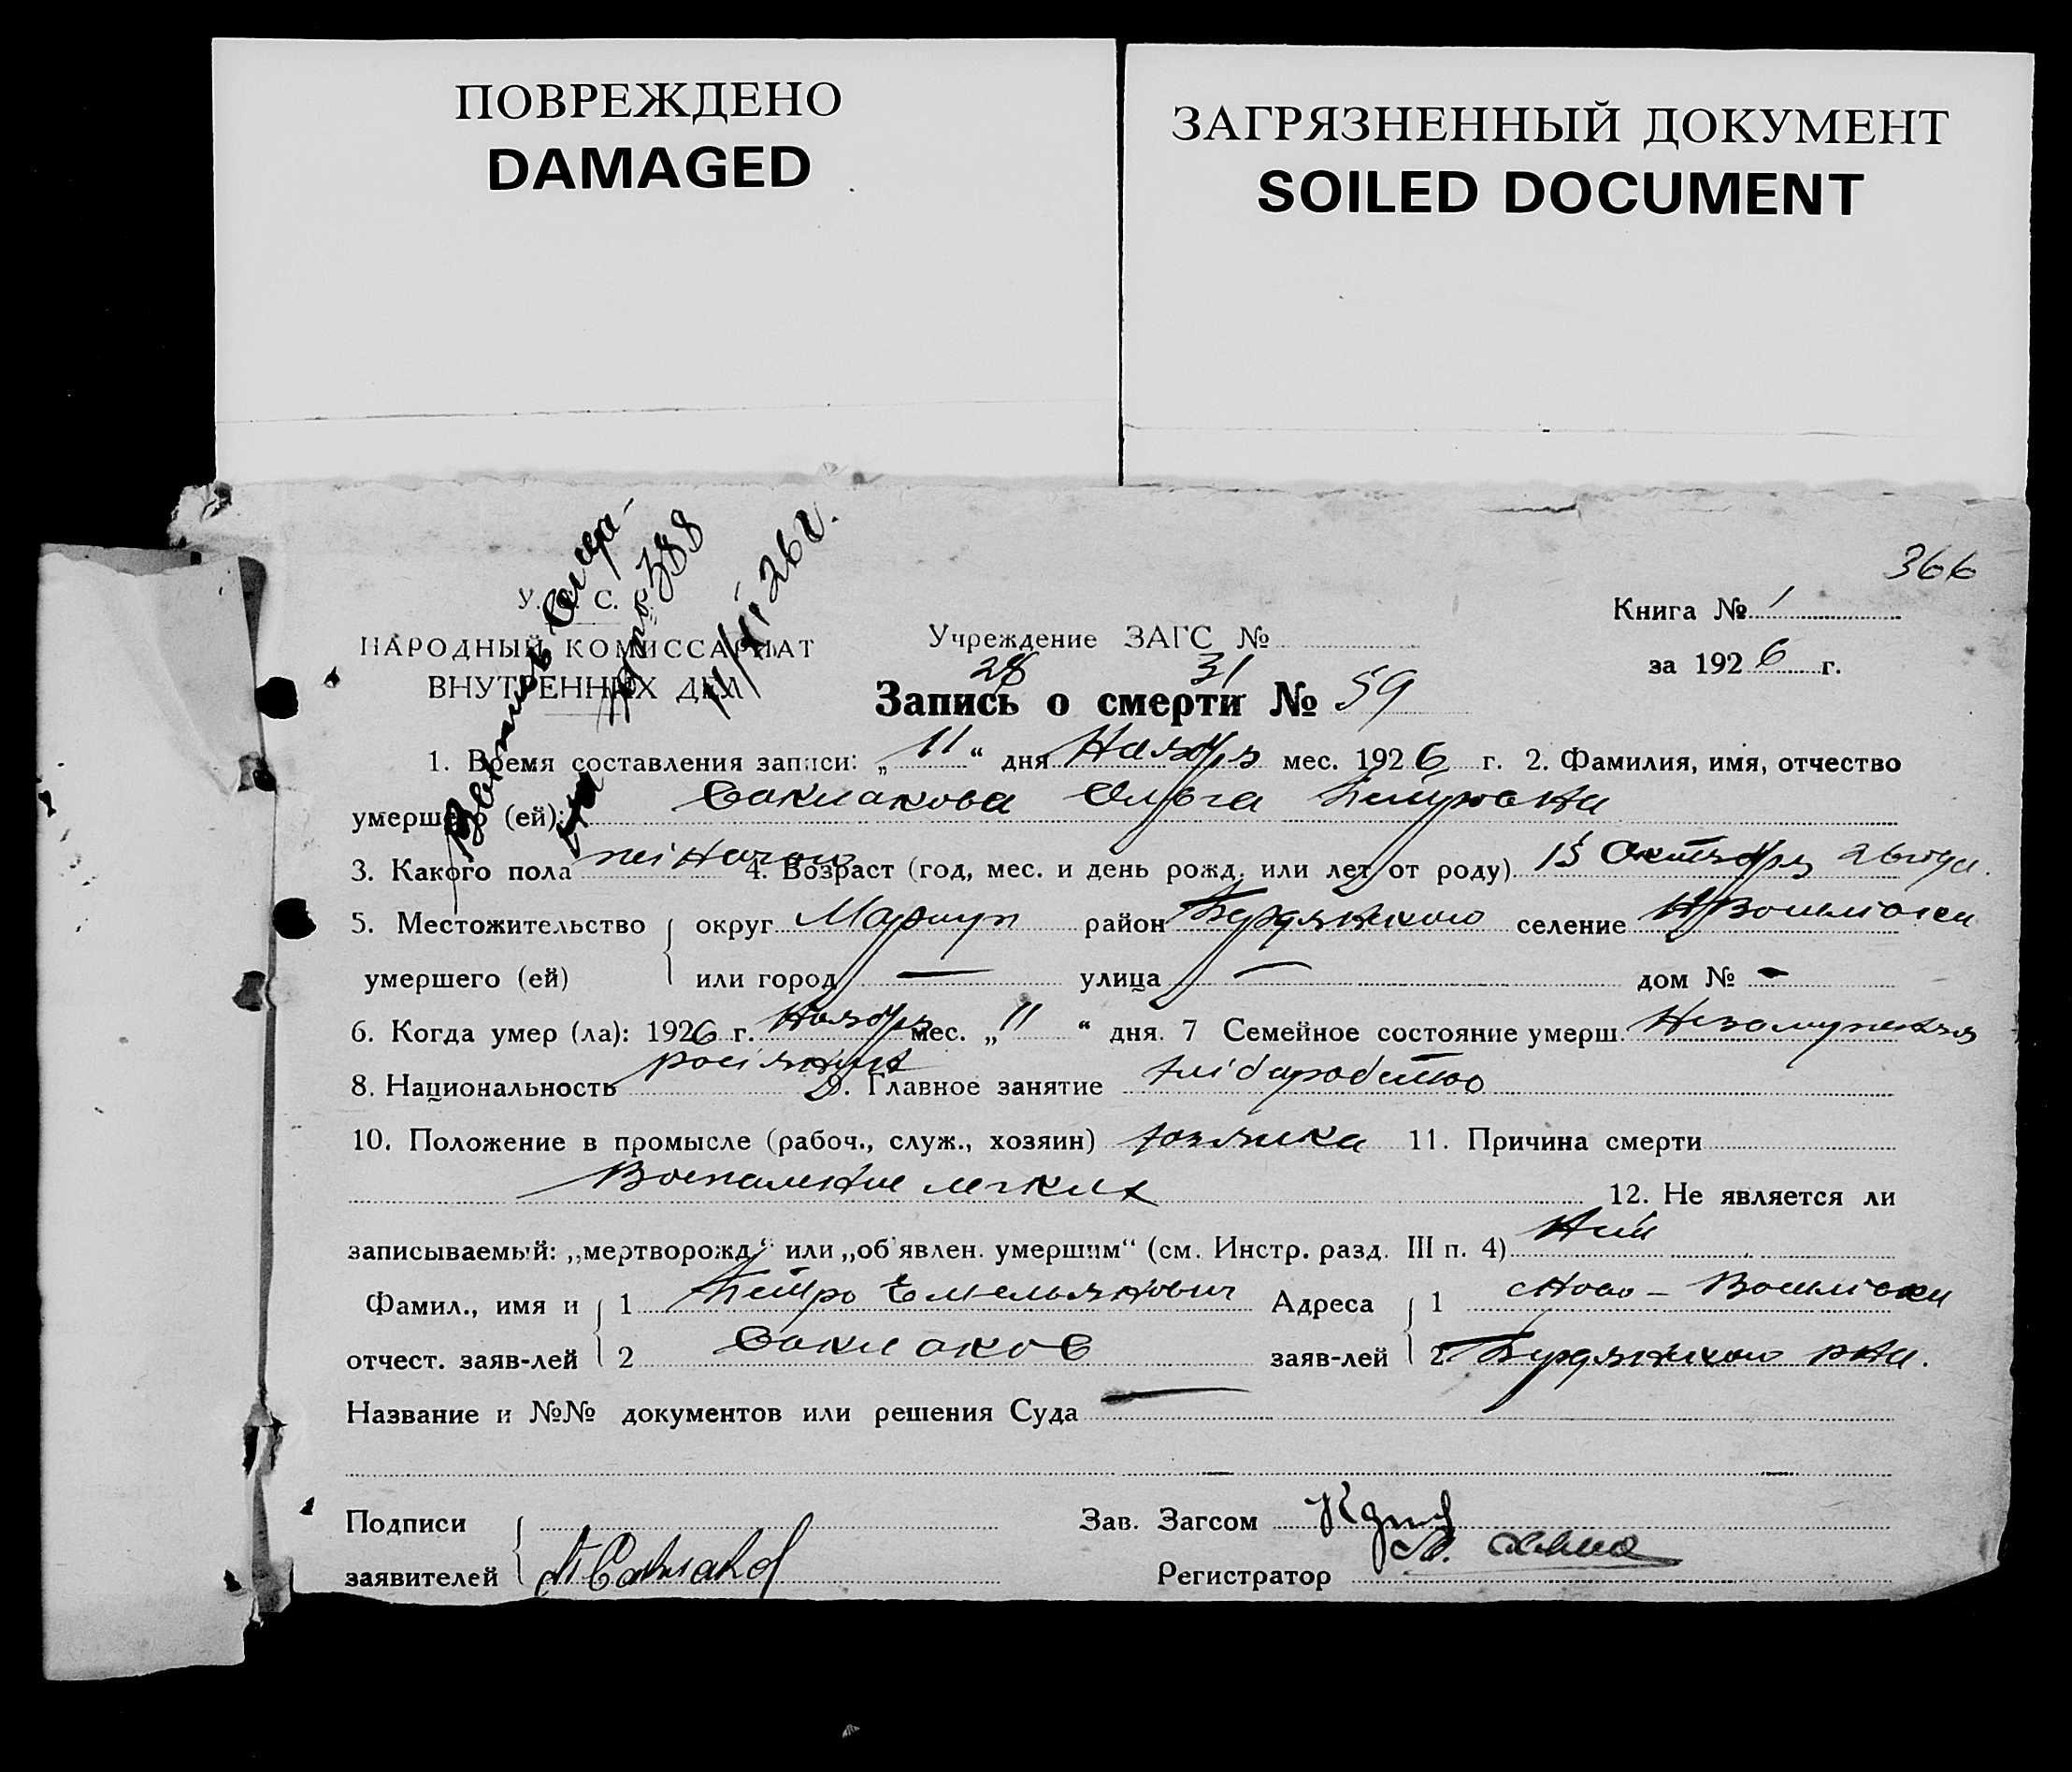 ПОВРЕЖДЕНО
DAMAGED
ЗАГРЯЗНЕННЫЙ ДОКУМЕНТ
SOILED DOCUMENT
366
У. С. С.
НАРОДНЫЙ КОМИССАРИАТ
ВНУТРЕННИХ ДЕЛ
388
11/XI 26 г.
Учреждение ЗАГС №
Книга № 1
за 1926 г.
28 31
Запись о смерти № 59
1. Время составления записи: „ 11 “ дня Ноября мес. 1926 г. 2. Фамилия, имя, отчество
умершего (ей): Саклакова Ольга Петровна
3. Какого пола 4. Возраст (год, мес. и день рожд. или лет от роду) 15 Октября 26 года.
5. Местожительство округ Мариуп район Бердянского селение
умершего (ей) или город — улица — дом № -
6. Когда умер (ла): 1926 г. Ноября мес. „ 11 “ дня. 7 Семейное состояние умерш. Незамужняя
8. Национальность 9. Главное занятие хліборобство
10. Положение в промысле (рабоч., служ., хозяин) хозяйка 11. Причина смерти
Воспаление легких 12. Не является ли
записываемый: „мертворожд.“ или „об'явлен. умершим“ (см. Инстр. разд. III п. 4) Нет
Фамил., имя и 1 Петро Емельянович Адреса 1 Ново -
отчест. заяв-лей 2 Саклаков заяв-лей 2 Бердянского р-на.
Название и №№ документов или решения Суда
Подписи Зав. Загсом
заявителей П Саклаков Регистратор